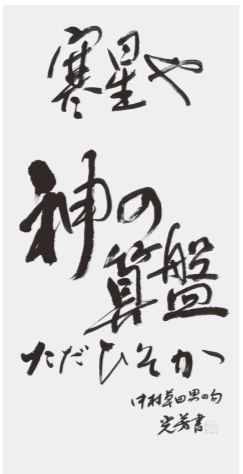 寒星や
神の
算盤
ただひそか
中村草田男の句
光芳書